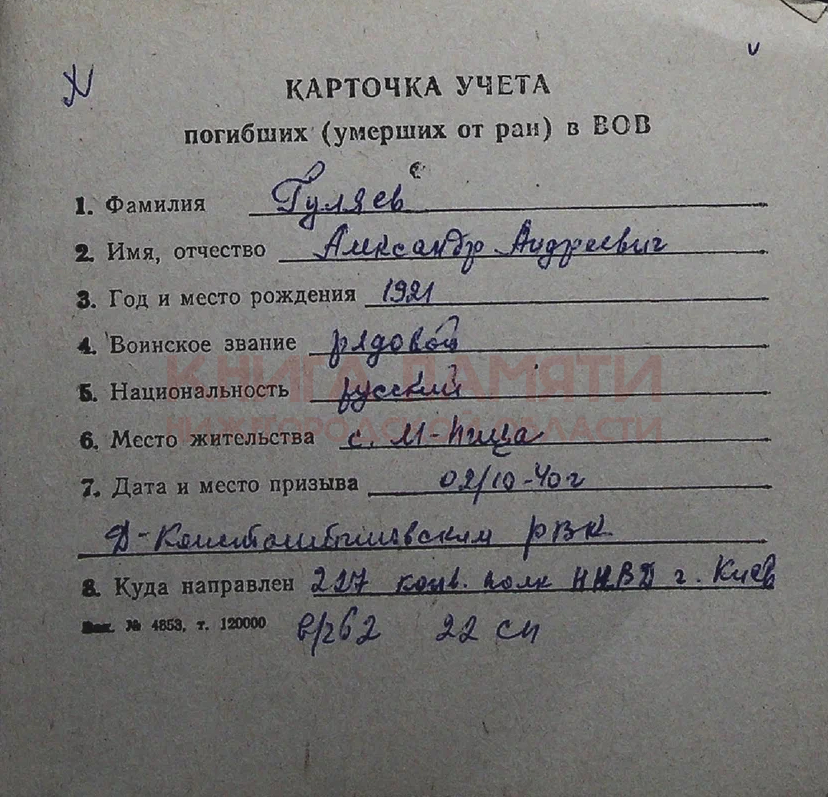 КАРТОЧКА УЧЕТА
погибших (умерших от ран) в ВОВ
1. Фамилия Гуляев
2. Имя, отчество Александр Андреевич
3. Год и место рождения 1921
4. Воинское звание рядовой
5. Национальность русский
КНИГА ПАМЯТИ
НИЖЕГОРОДСКОЙ ОБЛАСТИ
6. Место жительства с. М-Пица
7. Дата и место призыва 02/10-40г
Д-Константиновским РВК
8. Куда направлен 227 конв. полк НКВД г. Киев
№ 4853, т. 120000 в/г62 22 сп